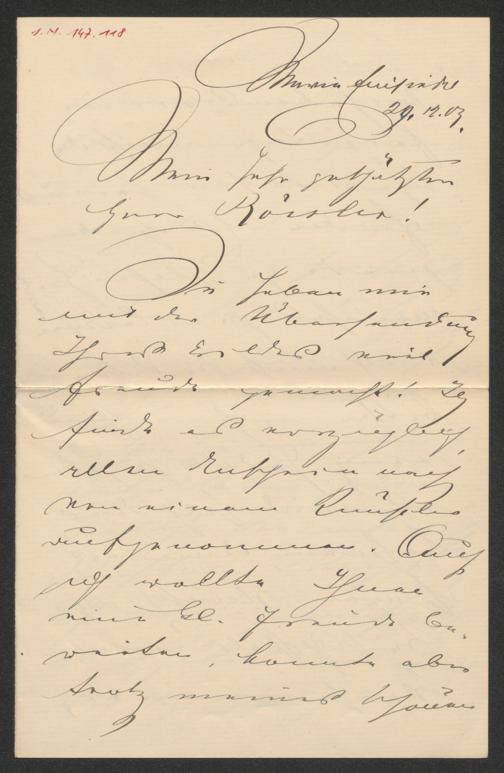 I.N. 147.118
Maria
29.12.03.
Mein sehr geschätzter
Herr Rössler!
Sie haben mir
mit der Übersendung
Ihres Bildes viel
Freude gemacht! Ich
finde es vorzüglich,
allem Anschein nach
von einem Künstler
aufgenommen. Auch
ich wollte Ihnen
eine kl. Freude be-
reiten, konnte aber
trotz meines